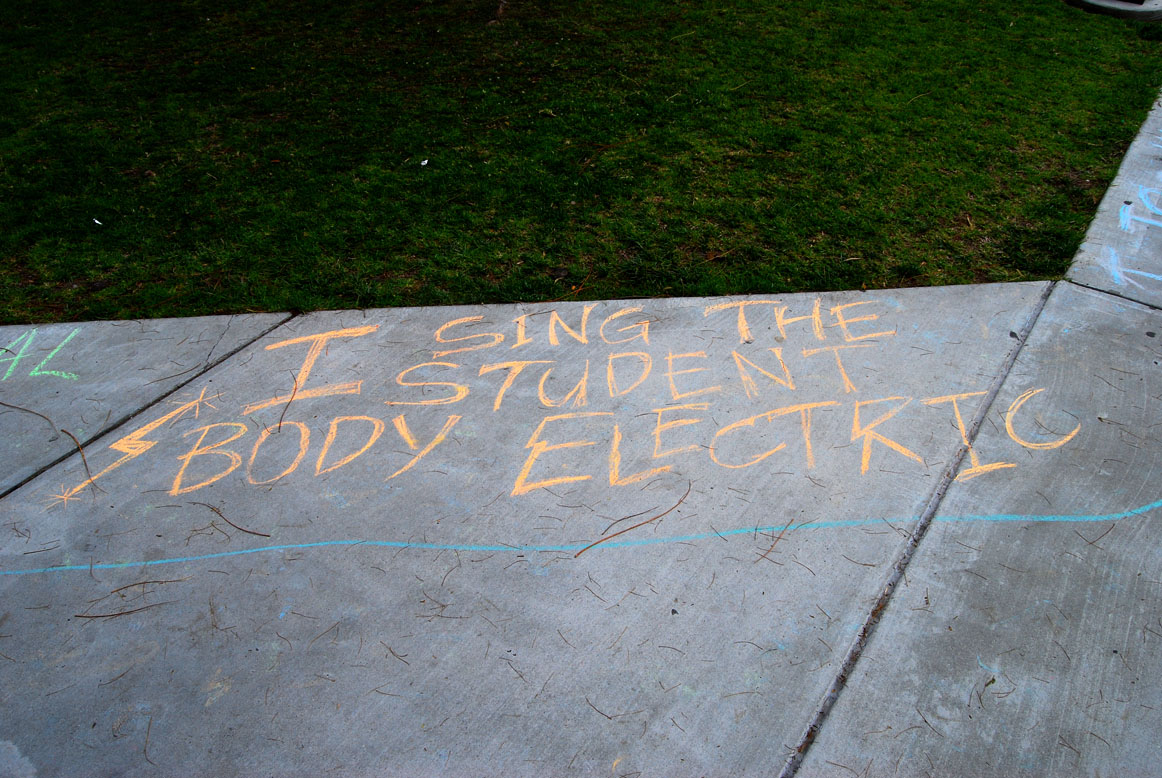 I SING THE
STUDENT
BODY ELECTRIC
AL